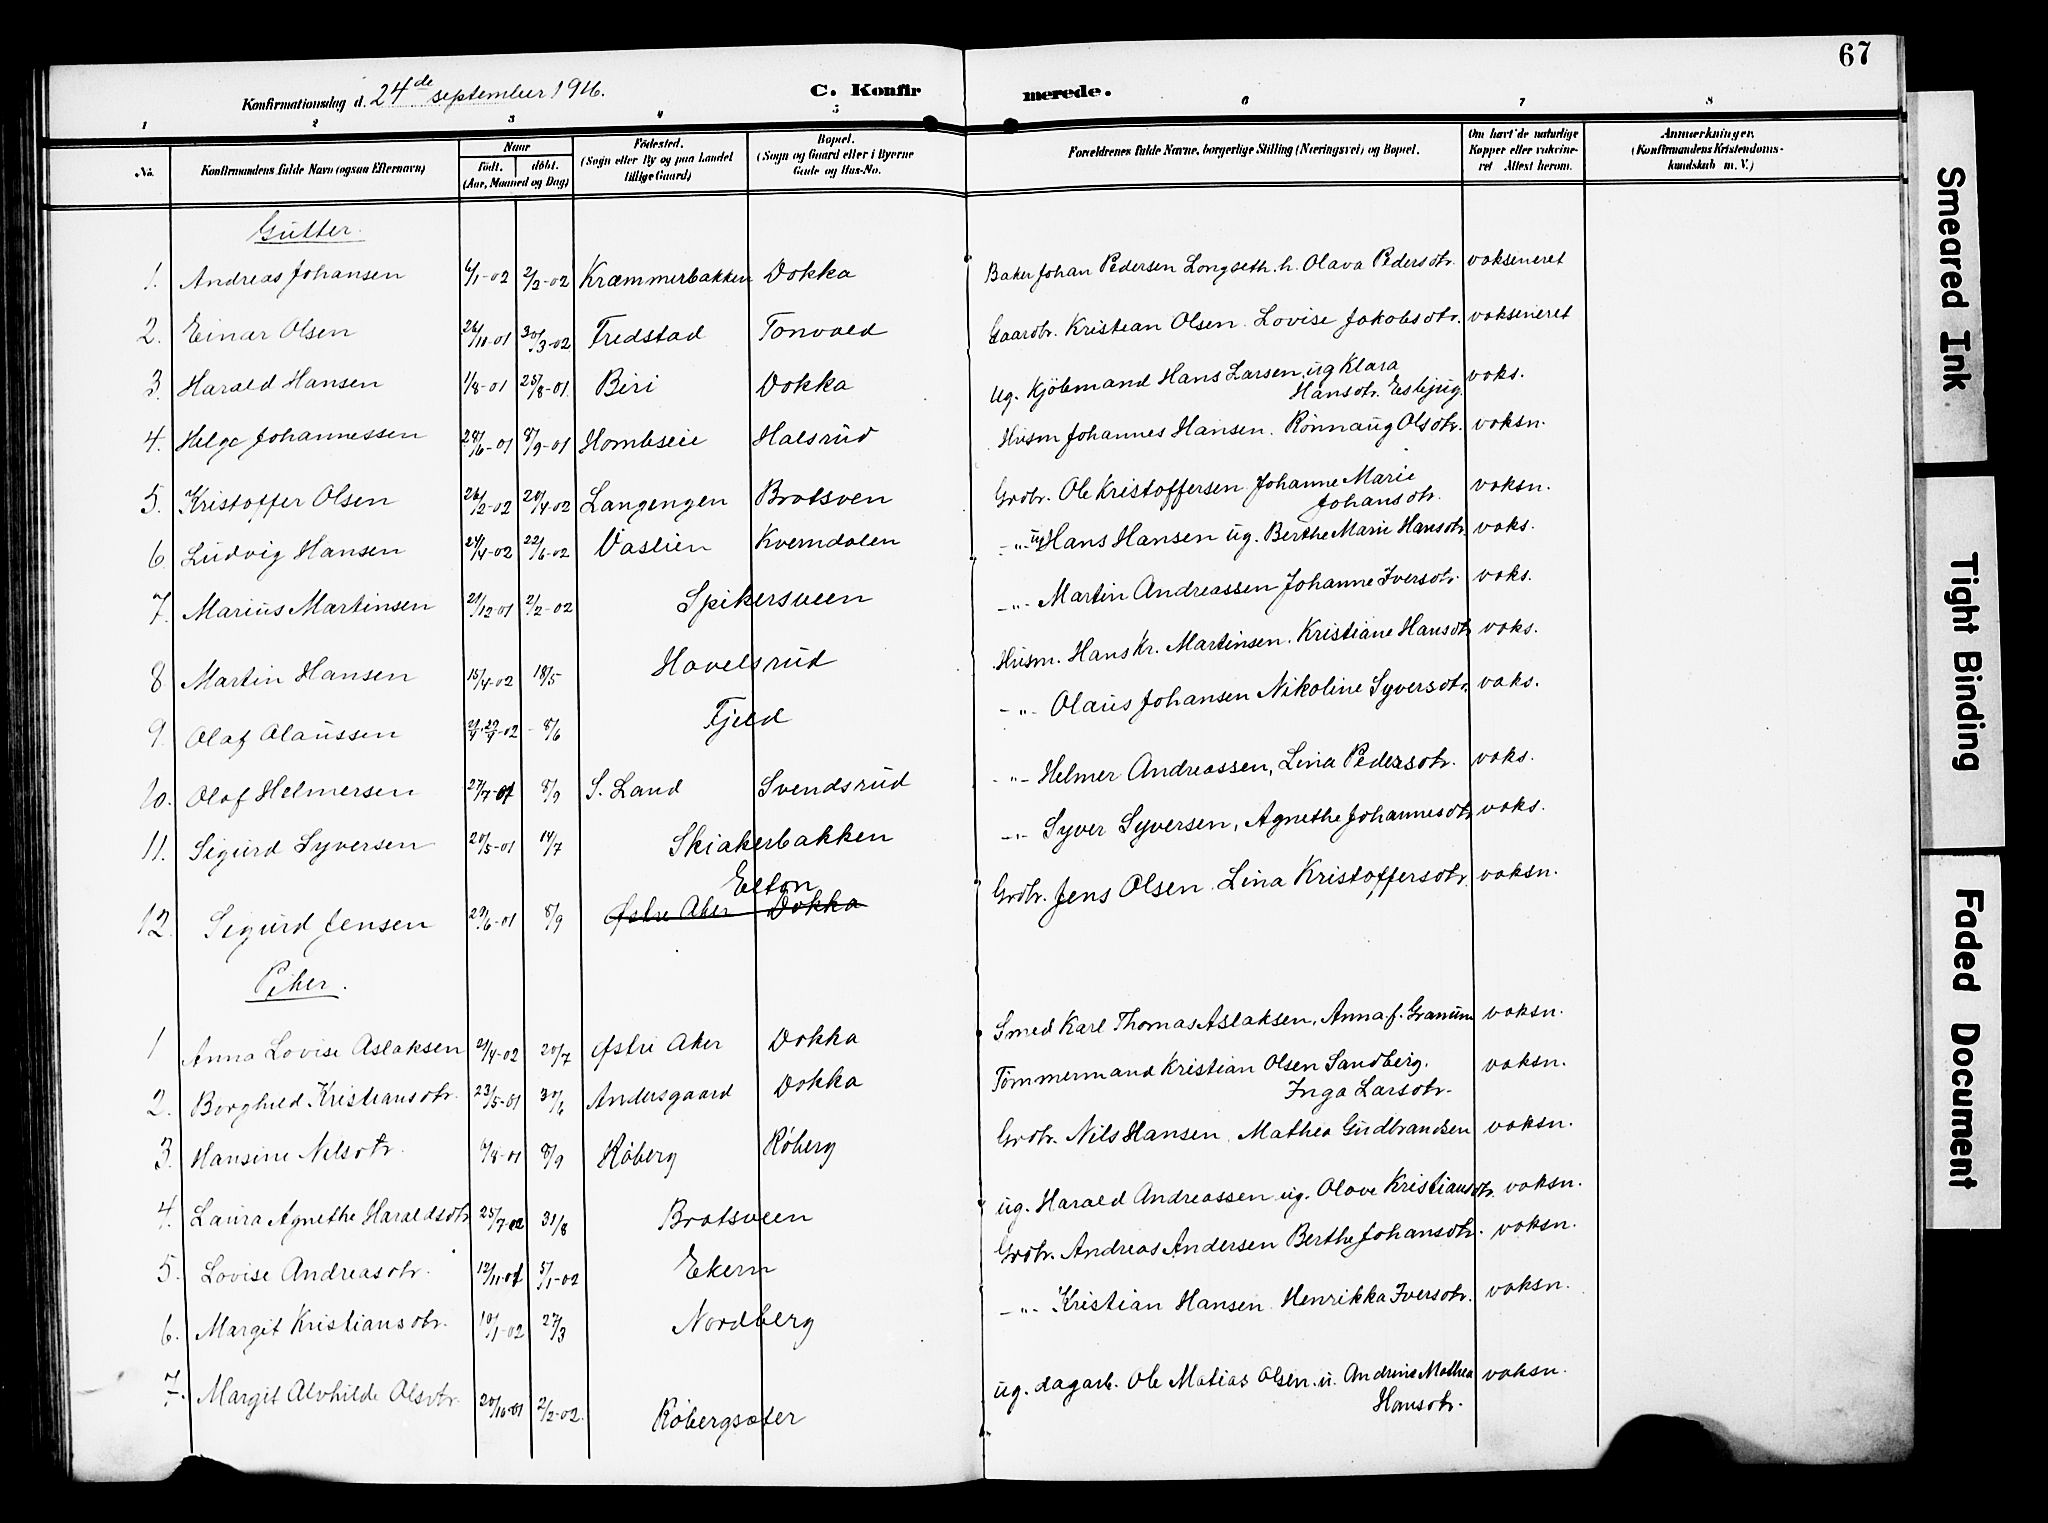 67
Konfirmationsdag d. 24de september 1916.
C. Konfir
merede.
1 2 3 4 5 6 7 8
No.
Konfirmandens fulde Navn (ogsaa Efternavn)
Naar
født. døbt.
(Aar, Maaned og Dag)
Fødested.
(Sogn eller By og paa Landet
tillige Gaard)
Bopæl.
(Sogn og Gaard eller i Byerne
Gade og Hus-No.
Forældrenes fulde Navne, borgerlige Stilling (Næringsvei) og Bopæl.
Om havt de naturlige
Kopper eller vaksine-
ret Attest herom.
Anmærkninger.
(Konfirmandens Kristendoms-
kundskab m. V.)
Gutter.
1. Andreas Johansen 6/1-02 2/2-02 Kræmmerbakken Dokka Baker Johan Pedersen Longseth. h. Olava Pedersdtr. vaksineret
2. Einar Olsen 26/10-01 30/3-02 Fredstad Tonvold Gaardbr. Kristian Olsen. Lovise Jakobsdtr. vaksineret
3. Harald Hansen 1/8-01 25/8-01 Biri Dokka ug. Kjöbmand Hans Larsen, ug Klara vaks.
Hansdtr.
4. Helge Johannessen 28/6-01 8/9-01 Hombseie Halsrud Husm Johannes Hansen. Rönnaug Olsdtr. vaksn.
5. Kristoffer Olsen 26/2-02 20/4-02 Langengen Bratsven Grdbr. Ole Kristoffersen Johanne Marie vaksn.
Johansdtr.
6. Ludvig Hansen 24/4-02 22/6-02 Vaslien Kverndalen -"- ug Hans Hansen ug. Berthe Marie Hansdtr. vaks.
7. Marius Martinsen 21/12-01 2/2-02 Spikersveen -"- Martin Andreassen Johanne Iversdtr. vaks.
8. Martin Hansen 15/4-02 18/5 Havelsrud Husm. Hans Kr. Martinsen. Kristiane Hansdtr vaks.
9. Olaf Olaussen -02 8/6 Fjeld -"- Olaus Johansen Nikoline Syversdtr. vaks.
10. Olaf Helmersen 27/7-01 8/9 S. Land Svendsrud -"- Helmer Andreassen, Lina Pedersdtr. vaks.
11. Sigurd Syversen 20/5-01 14/7 Skiakerbakken -"- Syver Syversen, Agnethe Johannesdtr vaks.
Elton
12. Sigurd Jensen 29/6-01 8/9 Østre Aker Dokka Grdbr. Jens Olsen. Lina Kristoffersdtr. vaksn.
Piker.
1 Anna Lovise Aslaksen 21/4-02 20/7 Østre Aker Dokka Smed Karl Thomas Aslaksen, Anna f. Granum vaksn.
2. Borghild Kristiansdtr. 23/5-01 30/6 Andersgaard Dokka Tömmermand Kristian Olsen Sandberg. vaksn.
Inga Larsdtr.
3. Hansine Nilsdtr. 6/8-01 8/9 Röberg Röberg Grdbr. Nils Hansen. Mathea Gudbrandsen vaksn.
4. Laura Agnethe Haraldsdtr 25/7-02 31/8 Bratsveen ug. Harald Andreassen ug. Olave Kristiansdtr. vaksn.
5. Lovise Andreasdtr. 12/11-01 5/1-02 Ekern Grdbr. Andreas Andersen Berthe Johansdtr. vaksn.
6. Margit Kristiansdtr. 10/1-02 27/3 Nordberg -"- Kristian Hansen. Henrikka Iversdtr. vaksn.
7. Margit Alvhilde Olsdtr. 20/10-01 2/2-02. Röbergsæter ug. dagarb. Ole Matias Olsen. u. Andrine Mathea vaksn.
Hansdtr.
Smeared Ink
Tight Binding
Faded Document